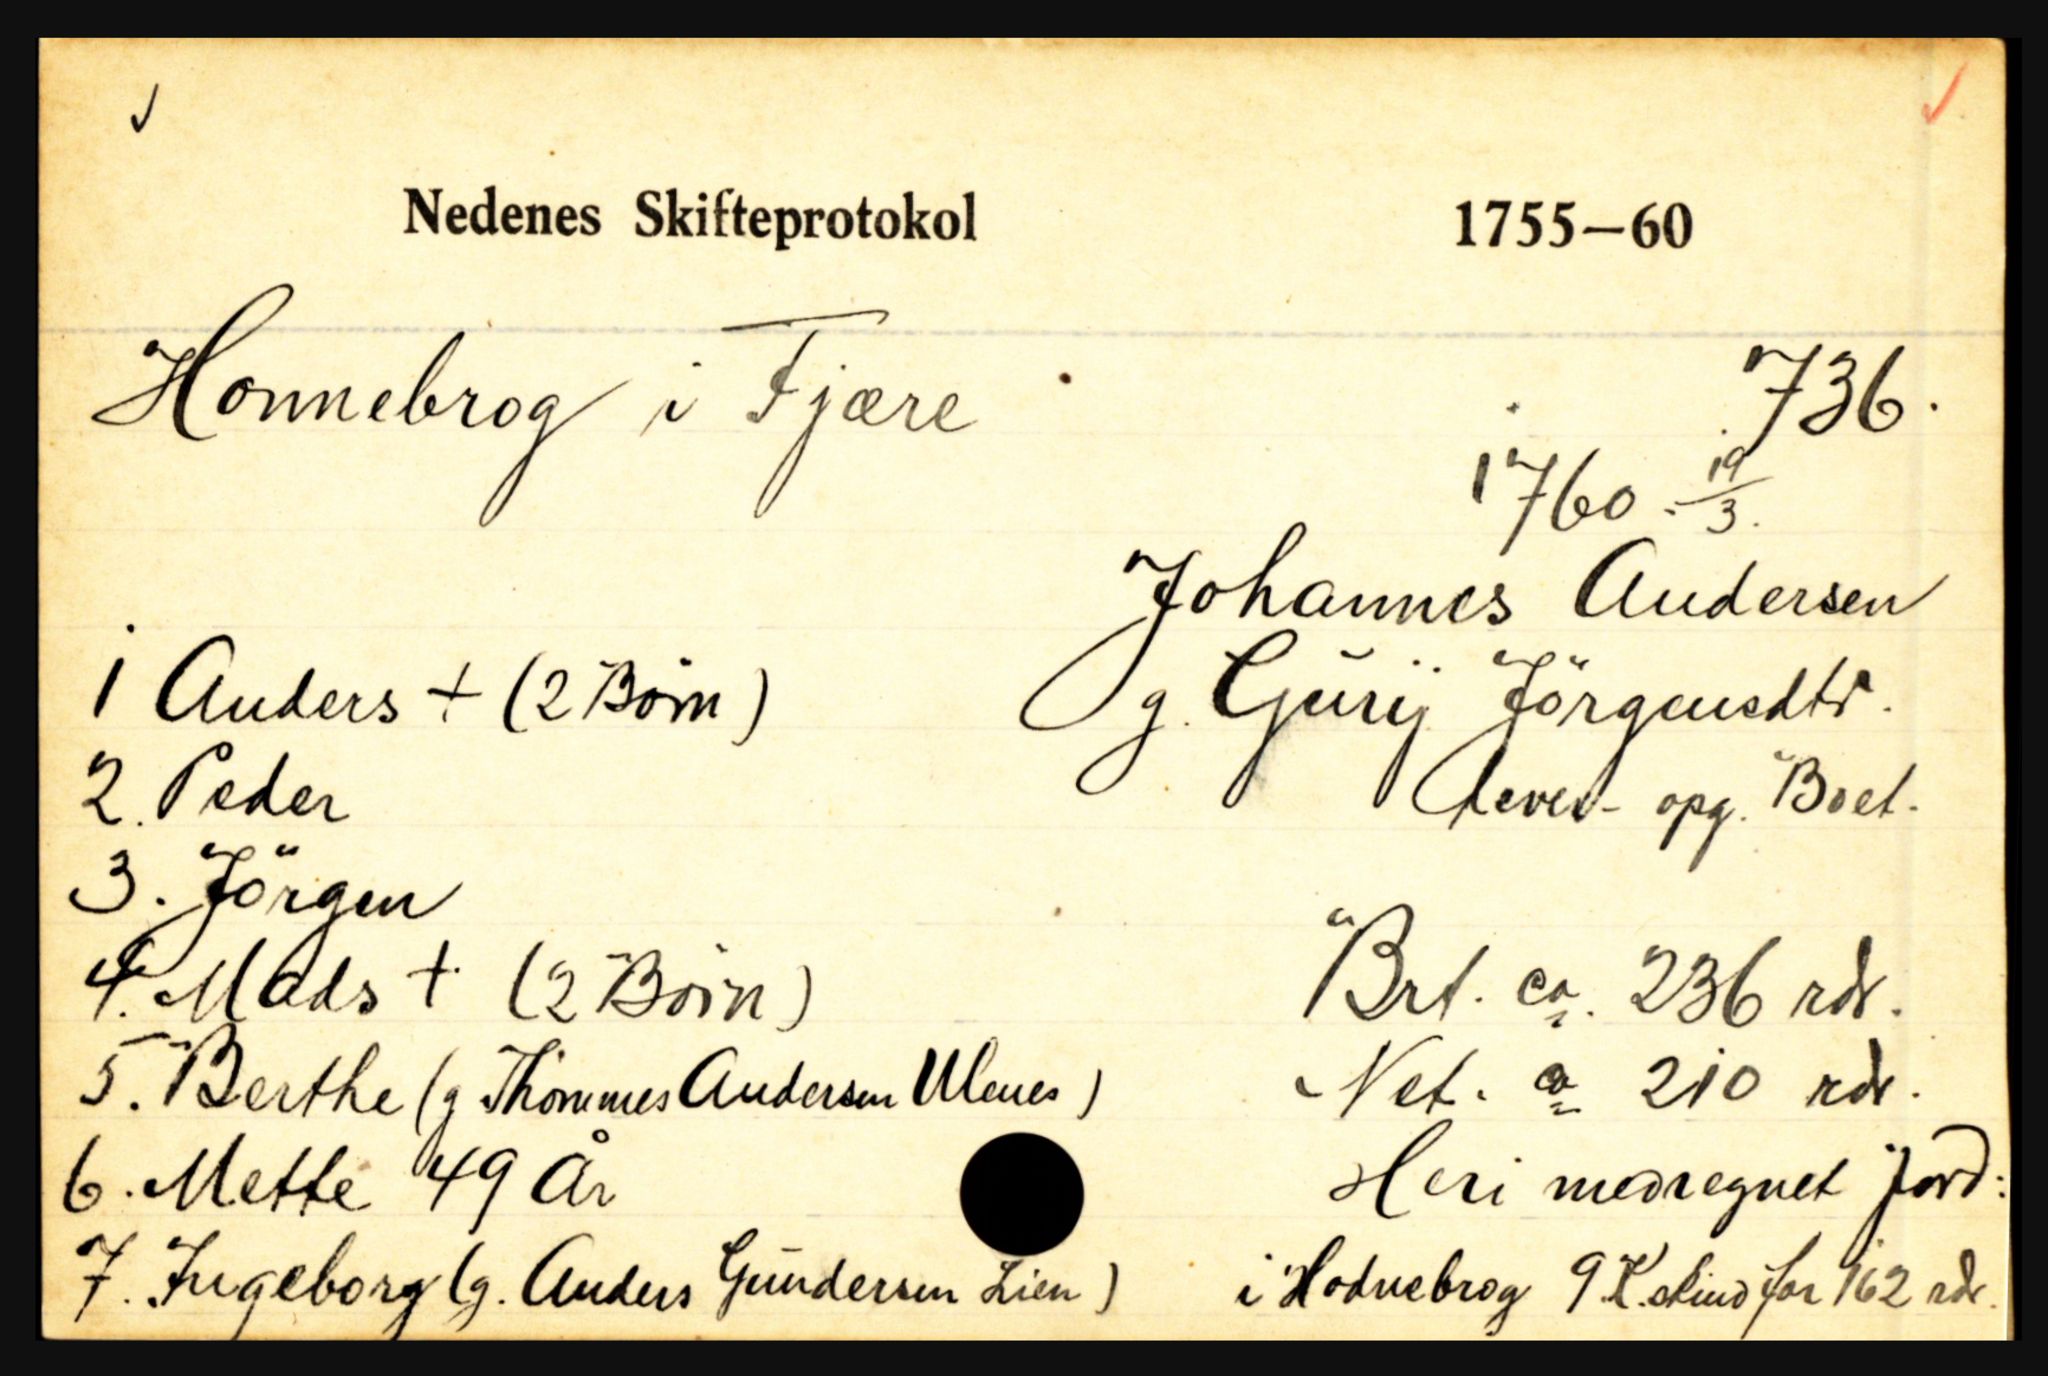 Nedenes Skifteprotokol 1755—60
Honnebrog i Fjære
736.
1760 - 19/3.
Johannes Andersen
g. Gurij Jörgensdtr.
lever - opg. Boet.
1 Anders + (2 Börn)
2. Peder
3. Jörgen
4. Mads + (2 Börn)
5. Berthe (g Thommes Andersen Ulenes)
6. Mette 49 År
7. Ingeborg (g. Anders Gundersen Lien)
Brt. ca. 236 rdr.
Net. ca 210 rdr.
Heri medregnet Jord:
i Hodnebrog 9 K.skind for 162 rdr.